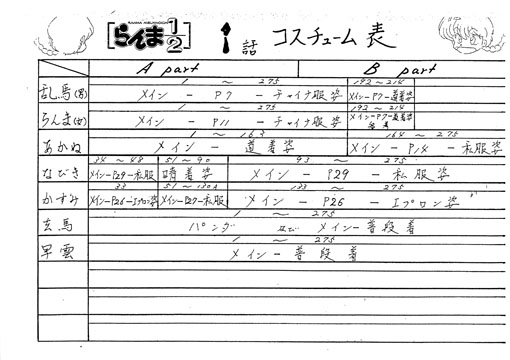 らんま1/2 1話 コスチューム表
A part B part
1 ～ 275 192 ～ 214
乱馬(男) メイン － P7 － チャイナ服姿 メイン－P7－道着姿
1 ～ 275 192 ～ 214
らんま(女) メイン － P11 － チャイナ服姿 メイン－P7－道着姿
1 ～ 163 164 ～ 275
あかね メイン － 道着姿 メイン － P14 － 私服姿
34 ～ 48 51 ～ 90 93 ～ 275
なびき メイン－P29－私服 晴着姿 メイン － P29 － 私服姿
33 51 ～ 130A 133 ～ 275
かすみ メイン－P26－エプロン姿 メイン－P27－私服 メイン － P26 － エプロン姿
1 ～ 275
玄馬 パンダ 及び メイン－普段着
1 ～ 275
早雲 メイン－普段着